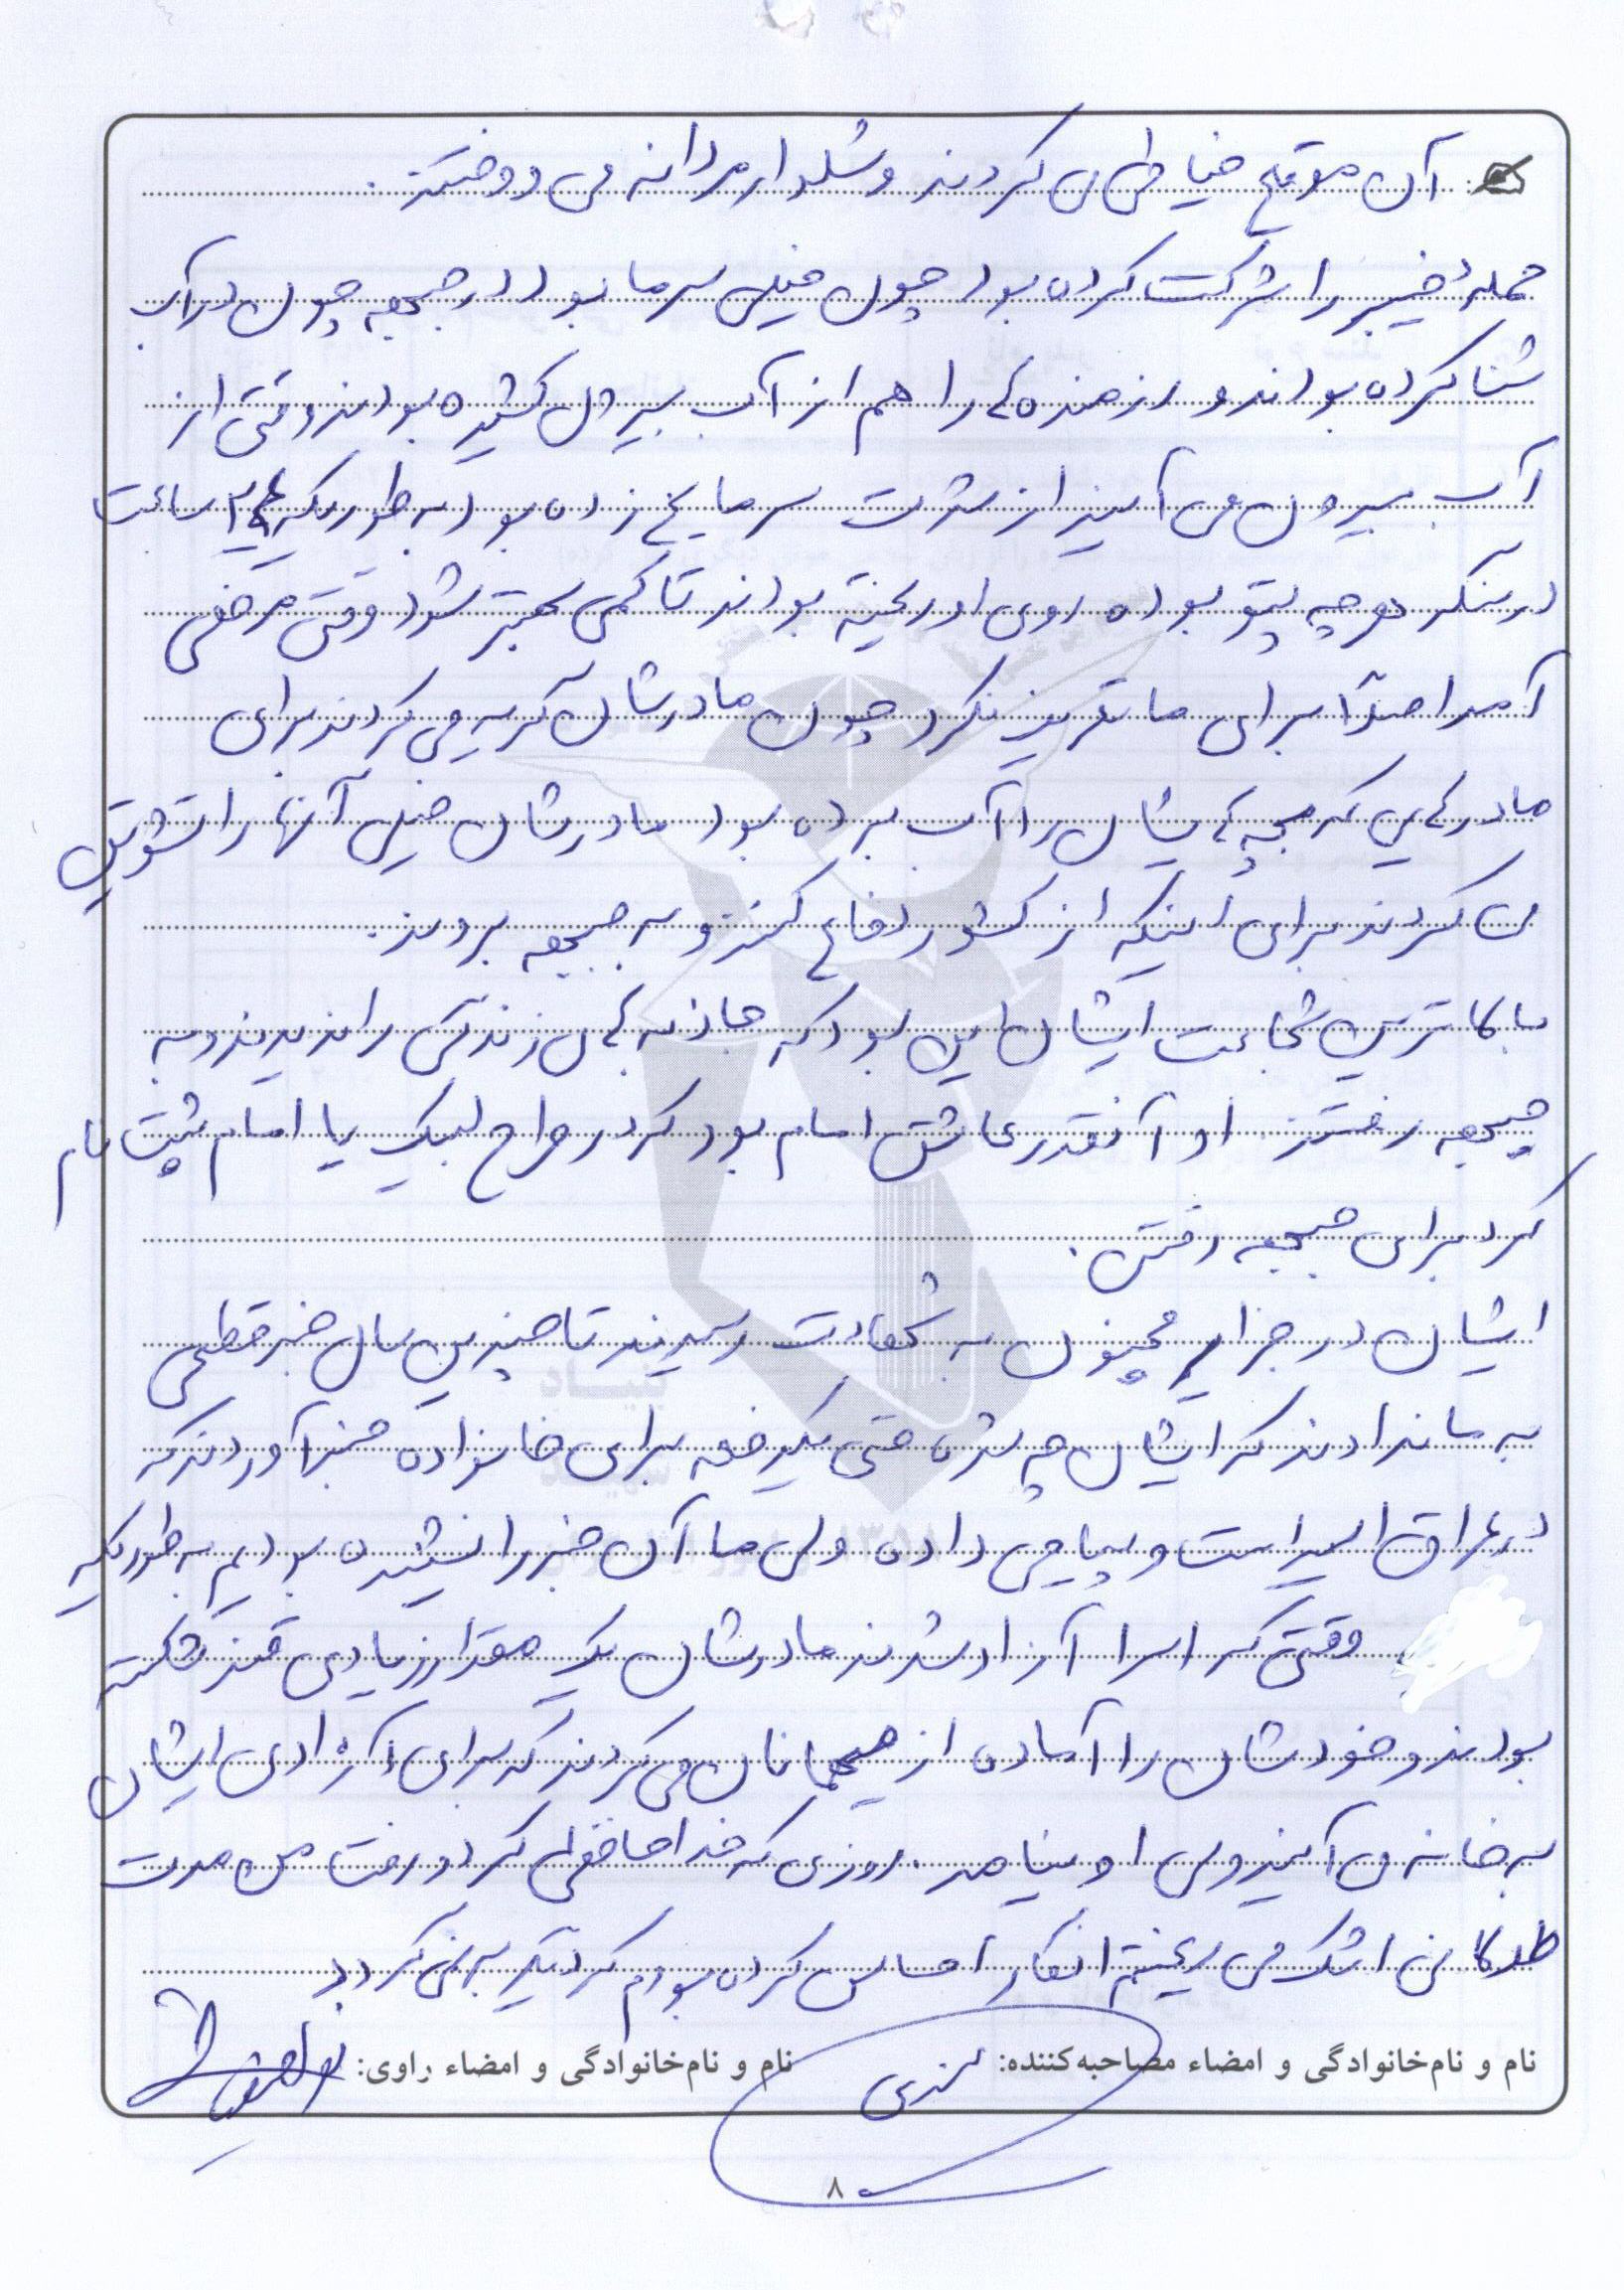 آن موقع خیاطی می کردند و شلوار مردانه می دوختند.
حمله خیبر را شرکت کرده بود چون خیلی سرما بود در جبهه چون در آب
شنا کرده بودند و رزمنده ها را هم از آب بیرون کشیده بودند وقتی از
آب بیرون می آیند از شدت سرما یخ زده بود به طوریکه ۲۴ ساعت
در سنگر هر چه پتو بوده روی او ریخته بودند تا کمی بهتر شود وقتی مرخصی
آمد اصلاً برای ما تعریف نکرد چون مادرشان گریه می کردند برای
مادرهایی که بچه هایشان را آب برده بود مادرشان خیلی آنها را تشویق
می کردند برای اینکه از کشور دفاع کنند و به جبهه بروند.
بالاترین شجاعت ایشان این بود که جاذبه های زندگی را ندیدند و به
جبهه رفتند. او آنقدر عاشق امام بود که در طرح لبیک یا امام ثبت نام
کرد برای جبهه رفتن.
ایشان در جزایر مجنون به شهادت رسیدند تا چندین سال خبر قطعی
به ما ندادند که ایشان چه شده حتی یکدفعه برای خانواده خبر آوردند که
در عراق اسیر است و پیامی داده ولی ما آن خبر را نشنیده بودیم به طوریکه
وقتی که اسرا آزاد شدند مادرشان یک مقدار زیادی قند شکسته
بودند و خودشان را آماده از میهمانان می کردند که برای آزادی ایشان
به خانه می آیند ولی او نیامد. روزی که خداحافظی کرد و رفت من مدت
طولانی اشک می ریختم انگار احساس کرده بودم که دیگر بر نمی گردد
نام و نام‌خانوادگی و امضاء مصاحبه‌کننده: نام و نام‌خانوادگی و امضاء راوی:
۸